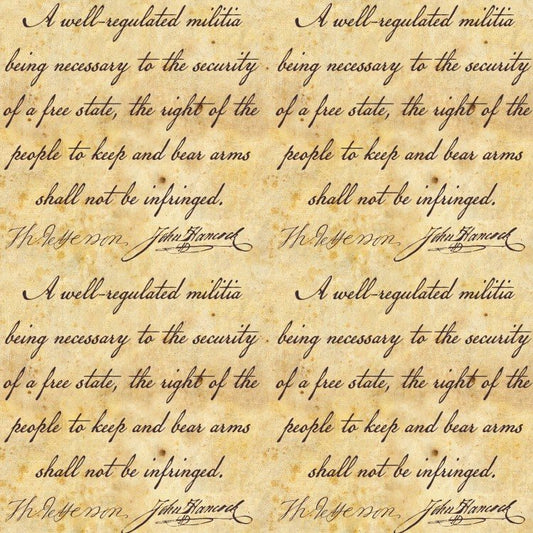 A well-regulated militia
being necessary to the security
of a free state, the right of the
people to keep and bear arms
shall not be infringed.
Th. Jefferson John Hancock
A well-regulated militia
being necessary to the security
of a free state, the right of the
people to keep and bear arms
shall not be infringed.
Th. Jefferson John Hancock
A well-regulated militia
being necessary to the security
of a free state, the right of the
people to keep and bear arms
shall not be infringed.
Th. Jefferson John Hancock
A well-regulated militia
being necessary to the security
of a free state, the right of the
people to keep and bear arms
shall not be infringed.
Th. Jefferson John Hancock